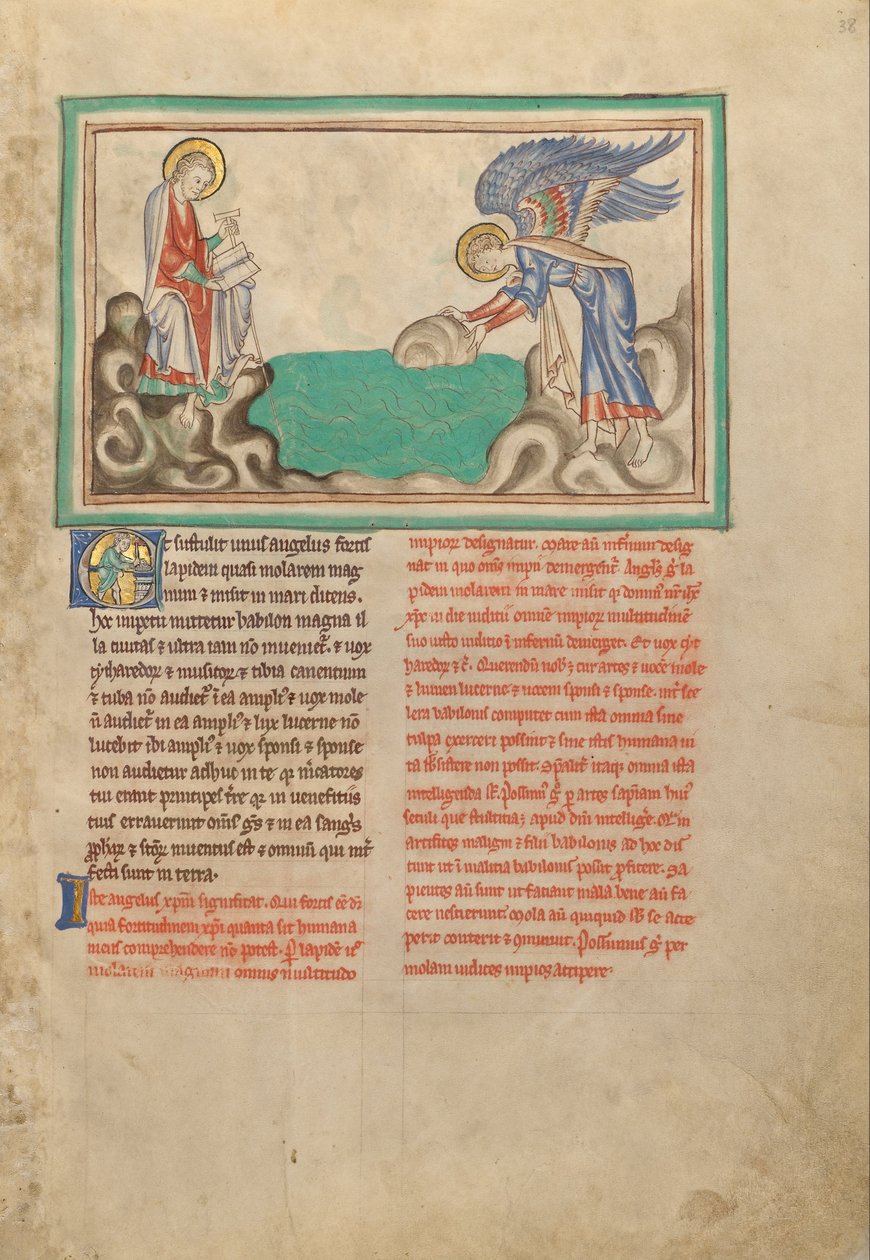 38
Et sustulit unus angelus fortis
lapidem quasi molarem mag
num ⁊ misit in mari dicens.
hoc impetu mittetur babilon magna il
la ciuitas ⁊ ultra iam nō inueniet᷑. ⁊ uox
cytharedoꝝ ⁊ musicoꝝ ⁊ tibia canentium
⁊ tuba nō audiet᷑ ī ea ampliꝰ ⁊ uox mole
n̄ audiet᷑ in ea ampliꝰ ⁊ lux lucerne nō
lucebit ibi ampliꝰ ⁊ uox sponsi ⁊ sponse
non audietur adhuc in te qꝛ m̄catores
tui erant principes t̄re qꝛ in ueneficiis
tuis errauerunt om̄s ḡs ⁊ in ea sangꝰs
ꝓphaꝝ ⁊ sc̄oꝝ inuentus est ⁊ omnium qui int̄
fecti sunt in terra.
Iste angelus xp̄m significat. Qui fortis ee᷑ dr̄
quia fortitudinem xp̄i quanta sit humana
mens comprehendere nō potest. Per lapidē uᵒ
molarem magnum omnis multitudo
impioꝝ designatur. Mare aū infernum desig
nat in quo om̄s impii demergent᷑. Angłs ḡ la
pidem molarem in mare misit qꝛ dominꝰ nr̄ ih̄c
xp̄c in die iudicii omnē impioꝝ multitudinē
suo iusto iudicio ī infernū demerget. Et uox cyt
haredoꝝ ⁊ c̄. Querendū nob᷒ ē cur artes ⁊ uocē mole
⁊ lumen lucerne ⁊ uocem sponsi ⁊ sponse. int̄ sce
lera babilonis computet cum ista omnia sine
culpa exerceri possint ⁊ sine istis humana ui
ta sb̄sistere non possit. Sp̄alit᷑ itaqꝫ omnia ista
intelligenda st̄. Possumꝰ ḡ ꝑ artes sapīam huiꝰ
seculi que stulticia ē apud dm̄ intelliḡe.
artifices maligni ⁊ filii babilonis ad hoc dis
cunt ut ī malicia babilonis possīt ꝓficere. Sa
pientes aū sunt ut faciant mala. bene aū fa
cere nescierunt. Mola aū quicquid sb̄ se acce
perit conterit ⁊ ꝯminuit. Possumus ḡ per
molam iudices impios accipere.